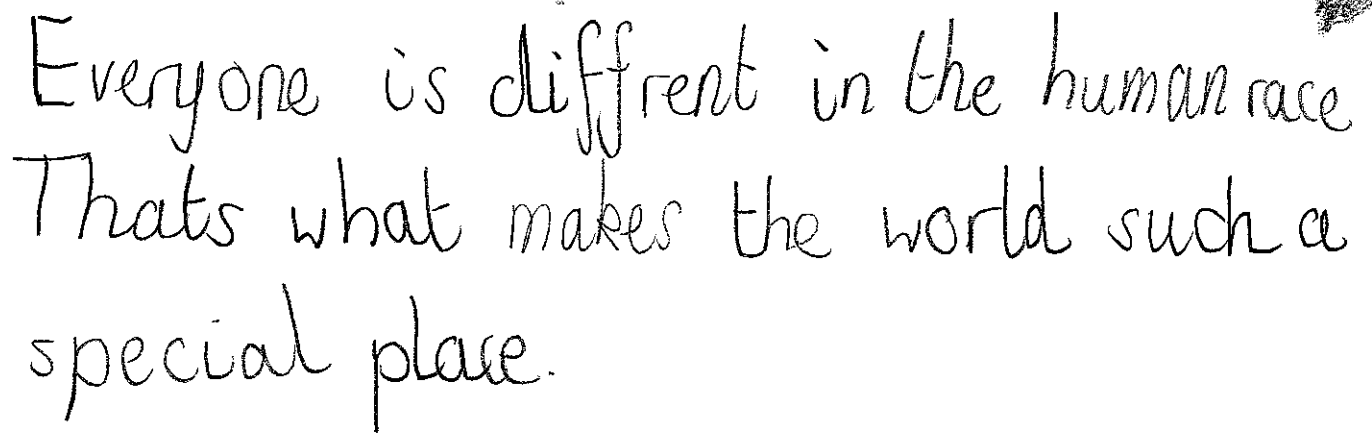 Everyone is diffrent in the human race
Thats what makes the world such a
special place.